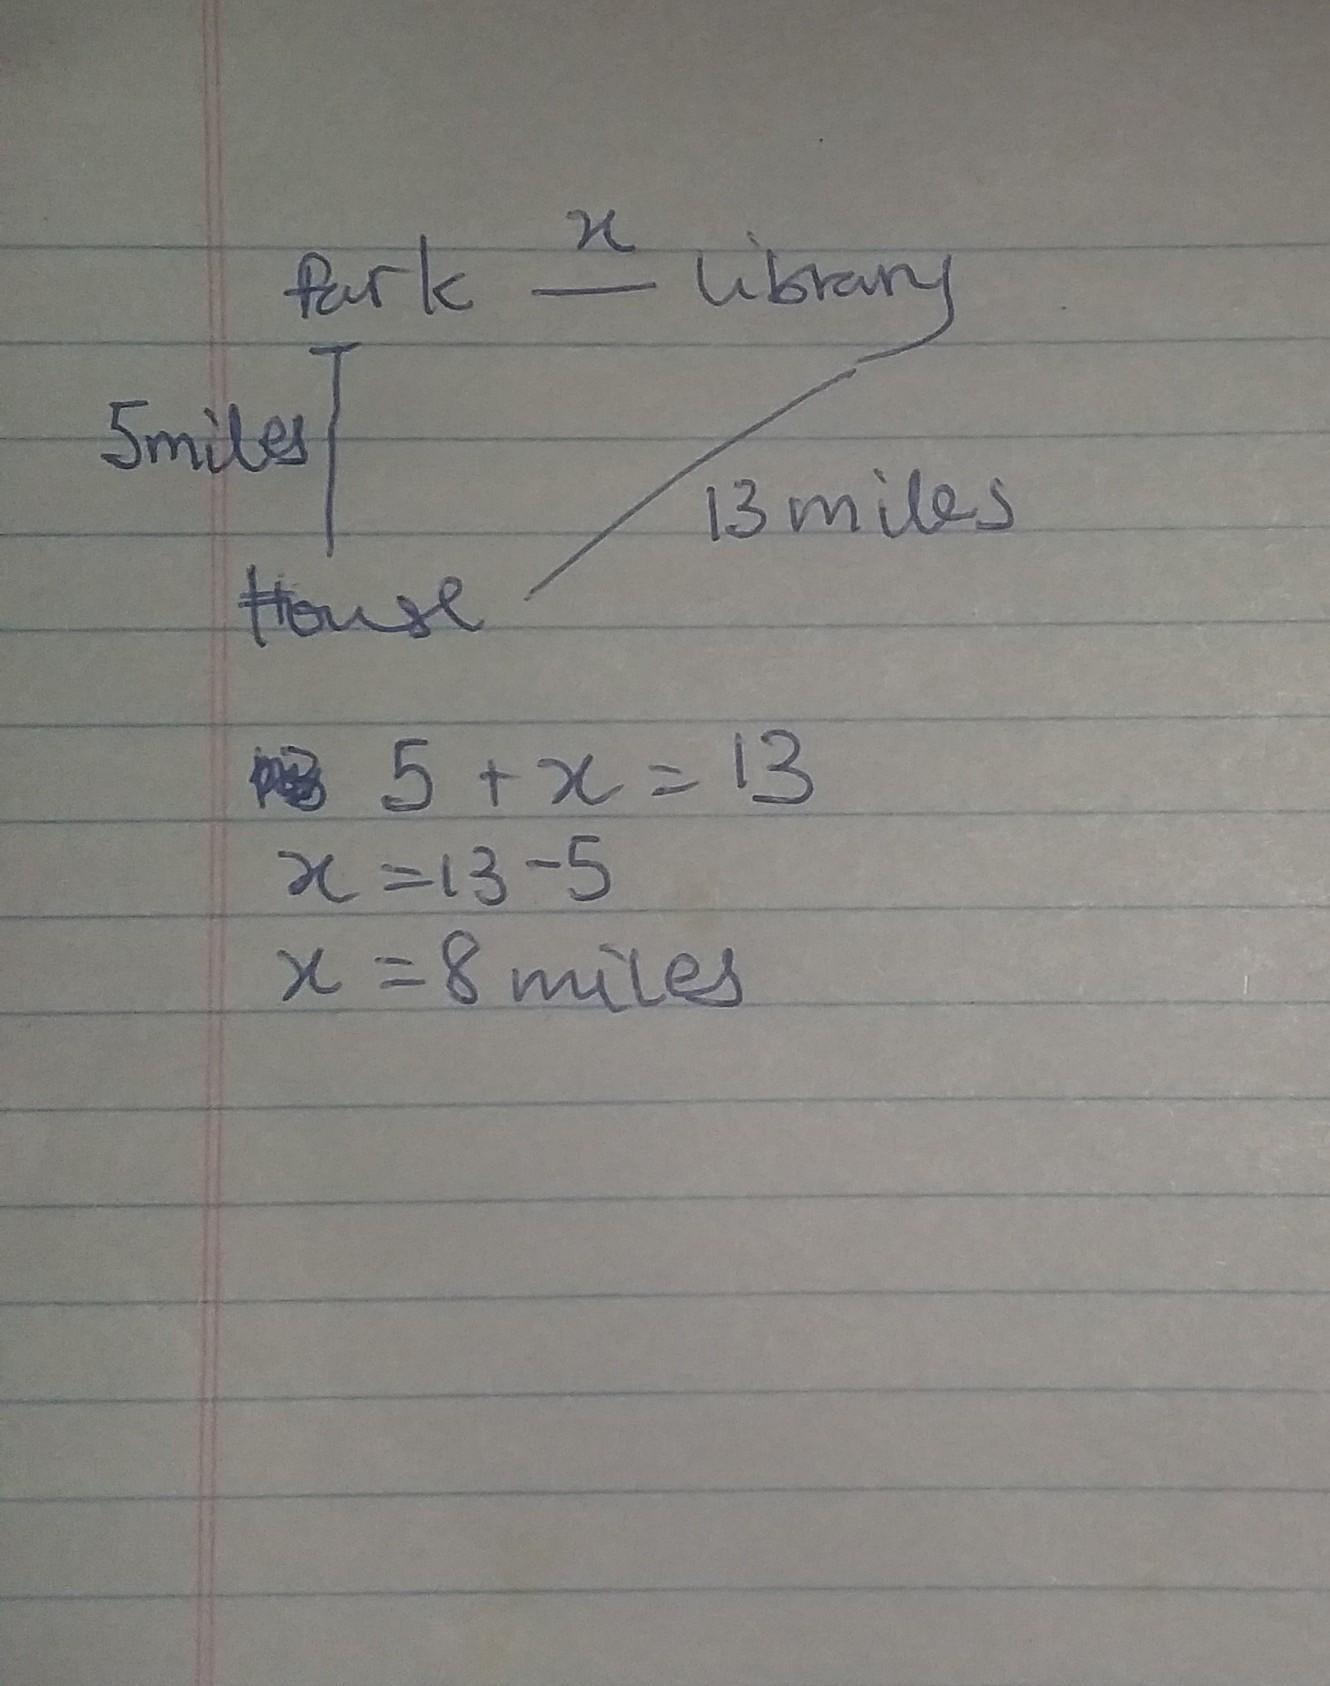 Park x library
5 miles
13 miles
House
5 + x = 13
x = 13 - 5
x = 8 miles